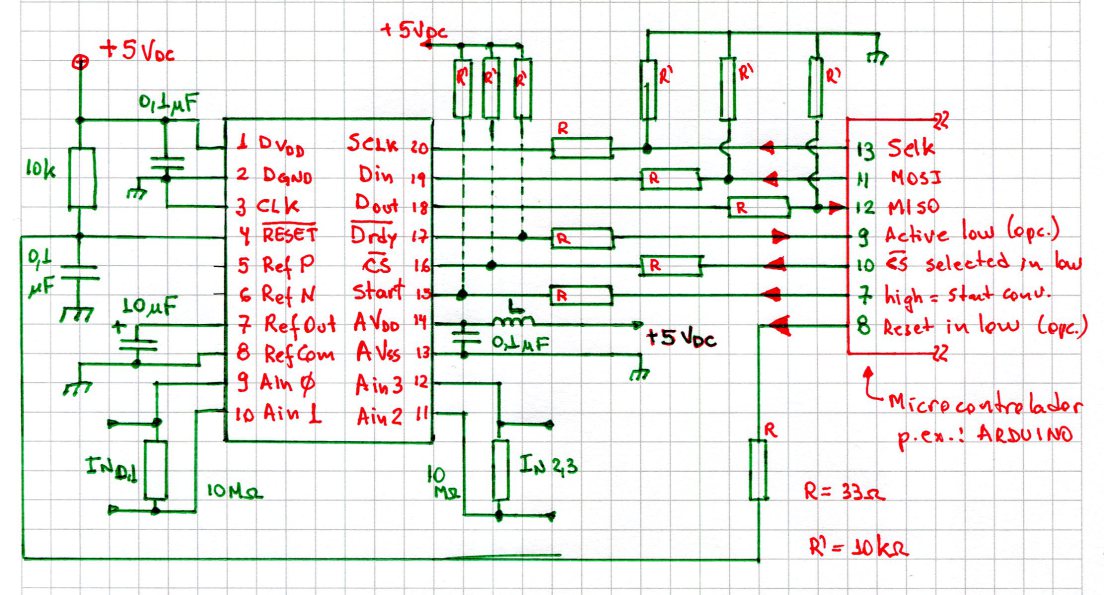 +5VDC
+5VDC
0,1µF
R' R' R' R' R' R'
10k
1 DVDD
2 DGND
3 CLK
4 RESET
5 Ref P
6 Ref N
7 Ref Out
8 Ref Com
9 AIn Ø
10 Ain 1
SCLK 20
Din 19
Dout 18
Drdy 17
CS 16
Start 15
AVDD 14
AVSS 13
Ain 3 12
Ain 2 11
R
R
R
R
R
R
13 Sclk
11 MOSI
12 MISO
9 Active low (opc.)
10 CS selected in low
7 high = start conv.
8 Reset in low (opc.)
0,1
µF
10µF
+
L
0,1µF
+5VDC
Microcontrolador
p.ex.: ARDUINO
IN0,1
10MΩ
10
MΩ
IN 2,3
R
R = 33Ω
R' = 10kΩ